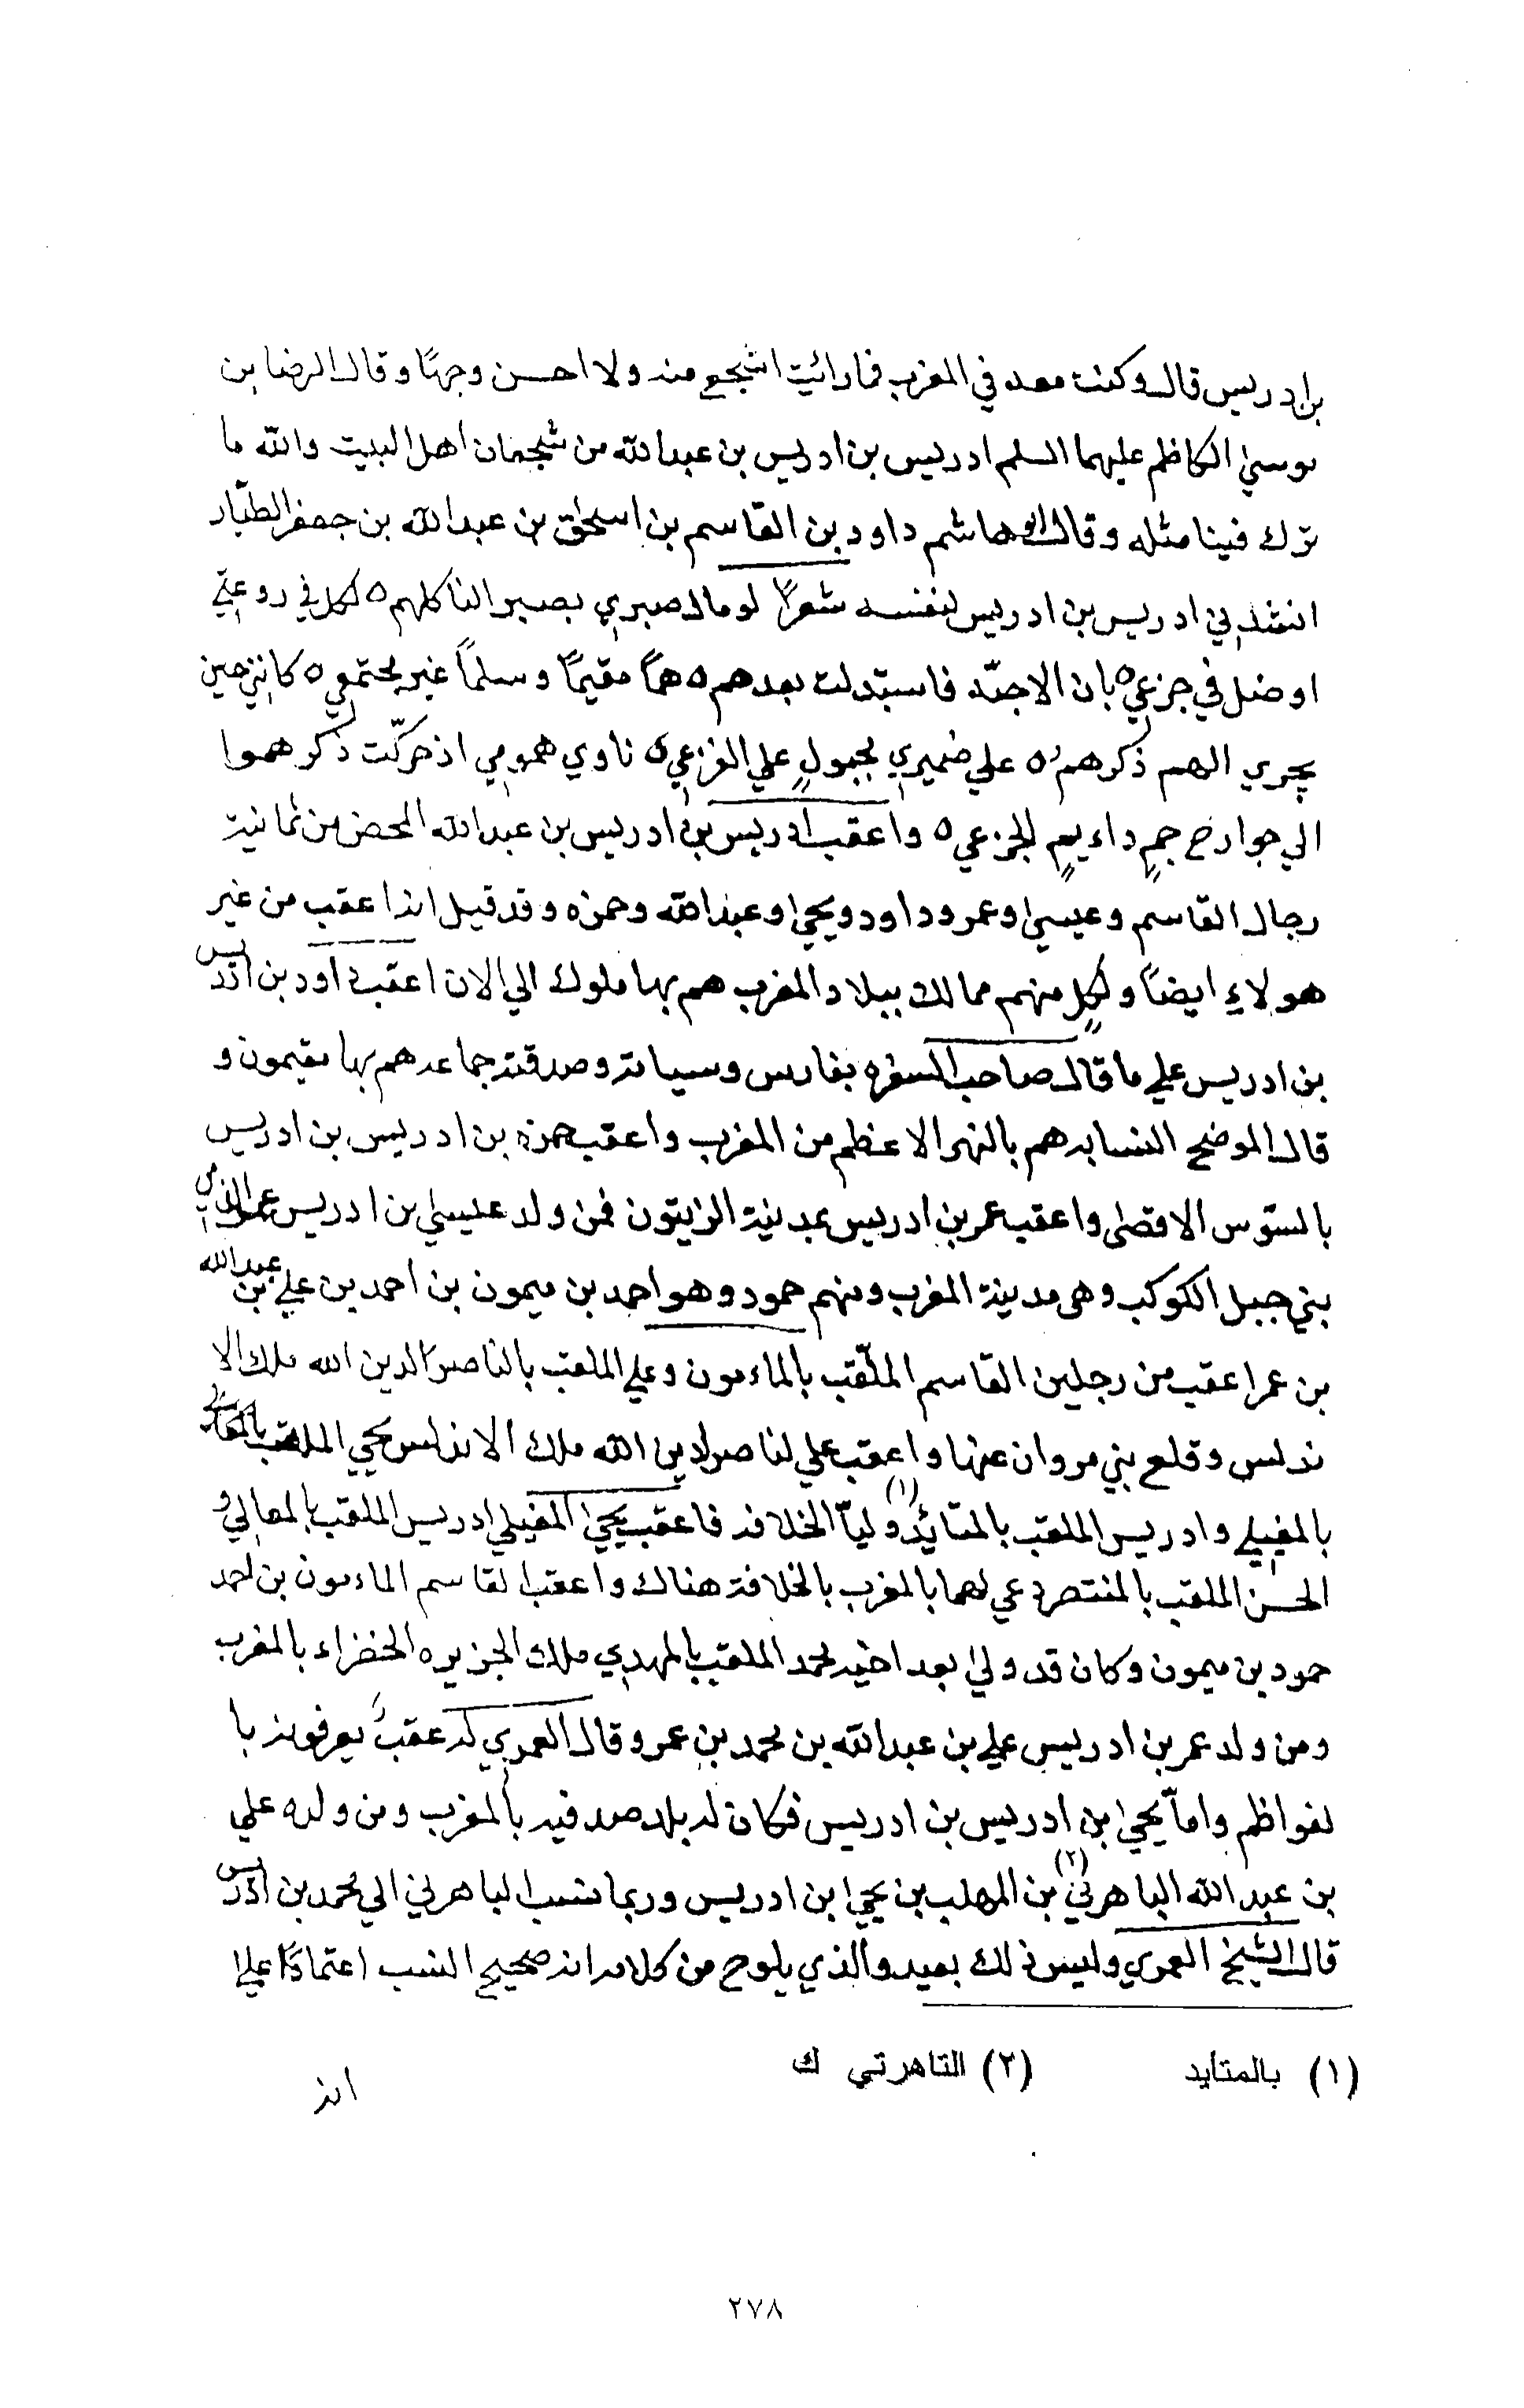 بن ادريس قال وكنت معه في المغرب فما رائيت اشجع منه ولا احسن وجهًا وقال الرضا بن
موسىٰ الكاظم عليهما السلم ادريس بن ادريس بن عبدالله من شجعان اهل البيت والله ما
ترك فينا مثله وقال ابو هاشم داود بن القاسم بن اسحٰق بن عبدالله بن جعفر الطيّار
انشدني ادريس بن ادريس لنفسه شعرًا لو مال صبري بصبر الناس كلهم ٥ لكل في روعتي
او ضل في جزعي ٥ بان الاحبّه فاستبدلت بعدهم ٥ همًا مقيمًا و سلمًا غير مجتمعي ٥ كانني حين
يجري الهم ذكرهم ٥ علي ضميري مجبولٍ علي الفزعي ٥ تاوي همومي اذ حركّت ذكرهموا
الي جوارح جمٍ داءيمٍ الجزعي ٥ واعقب ادريس بن ادريس بن عبدالله المحض من ثمانية
رجال القاسم وعيسىٰ وعمر وداود ويحيٰ وعبدالله وحمزه وقد قيل انه اعقب من غير
هولاءِ ايضاً ولكلٍ منهم ممالك ببلاد المغرب هم بها ملوك الي الان اعقب داود بن ادريس
بن ادريس علي ما قال صاحب السفره بفارس وسياته وصدقته جماعه هم بها مقيمون و
قال الموضح النسابه هم بالنهر الاعظم من المغرب واعقب حمزه بن ادريس بن ادريس
بالسّوس الاقصىٰ واعقب عمر بن ادريس بمدينة الزيتون فمن ولد عيسىٰ بن ادريس
بني جبل الكوكب وهى مدينة المغرب ومنهم حمود وهو احمد بن ميمون بن احمد بن علي بن عبدالله
بن عمر اعقب من رجلين القاسم الملّقب بالماءمون وعلي الملقب بالناصر لدين الله ملك الا
ندلس وقلع بني مروان عنها واعقب علي لناصر لدين الله ملك الاندلس يحيي الملقب
بالمغيلي وادريس الملقب بالمتائد (١) وليّا الخلافه فاعقب يحيىٰ المغيلي ادريس الملقب بالمعالي و
الحسن الملقب بالمنتصر دعي لهما بالمغرب بالخلافة هناك واعقب القاسم الماءمون بن احمد
حمود بن ميمون وكان قد ولي بعد اخيه محمد الملقب بالمهدي ملك الجزيره الخضراء بالمغرب
ومن ولد عمر بن ادريس علي بن عبدالله بن محمد بن عمر وقال العمري له عقبٌ يعرفون با
لفواطم وامّا يحيٰ بن ادريس بن ادريس فكان له بلد صدفيه بالمغرب ومن ولده علي
بن عبدالله الباهرني (٢) بن المهلب بن يحيٰ ابن ادريس وربما نسب الباهرني الي محمد بن ادريس
قال الشيخ العمري وليس ذلك بعيد والذي يلوح من كلامه انه صحيح النسب اعتمادًا علي
(١) بالمتأيد (٢) التاهرتي ك
انه
٢٧٨